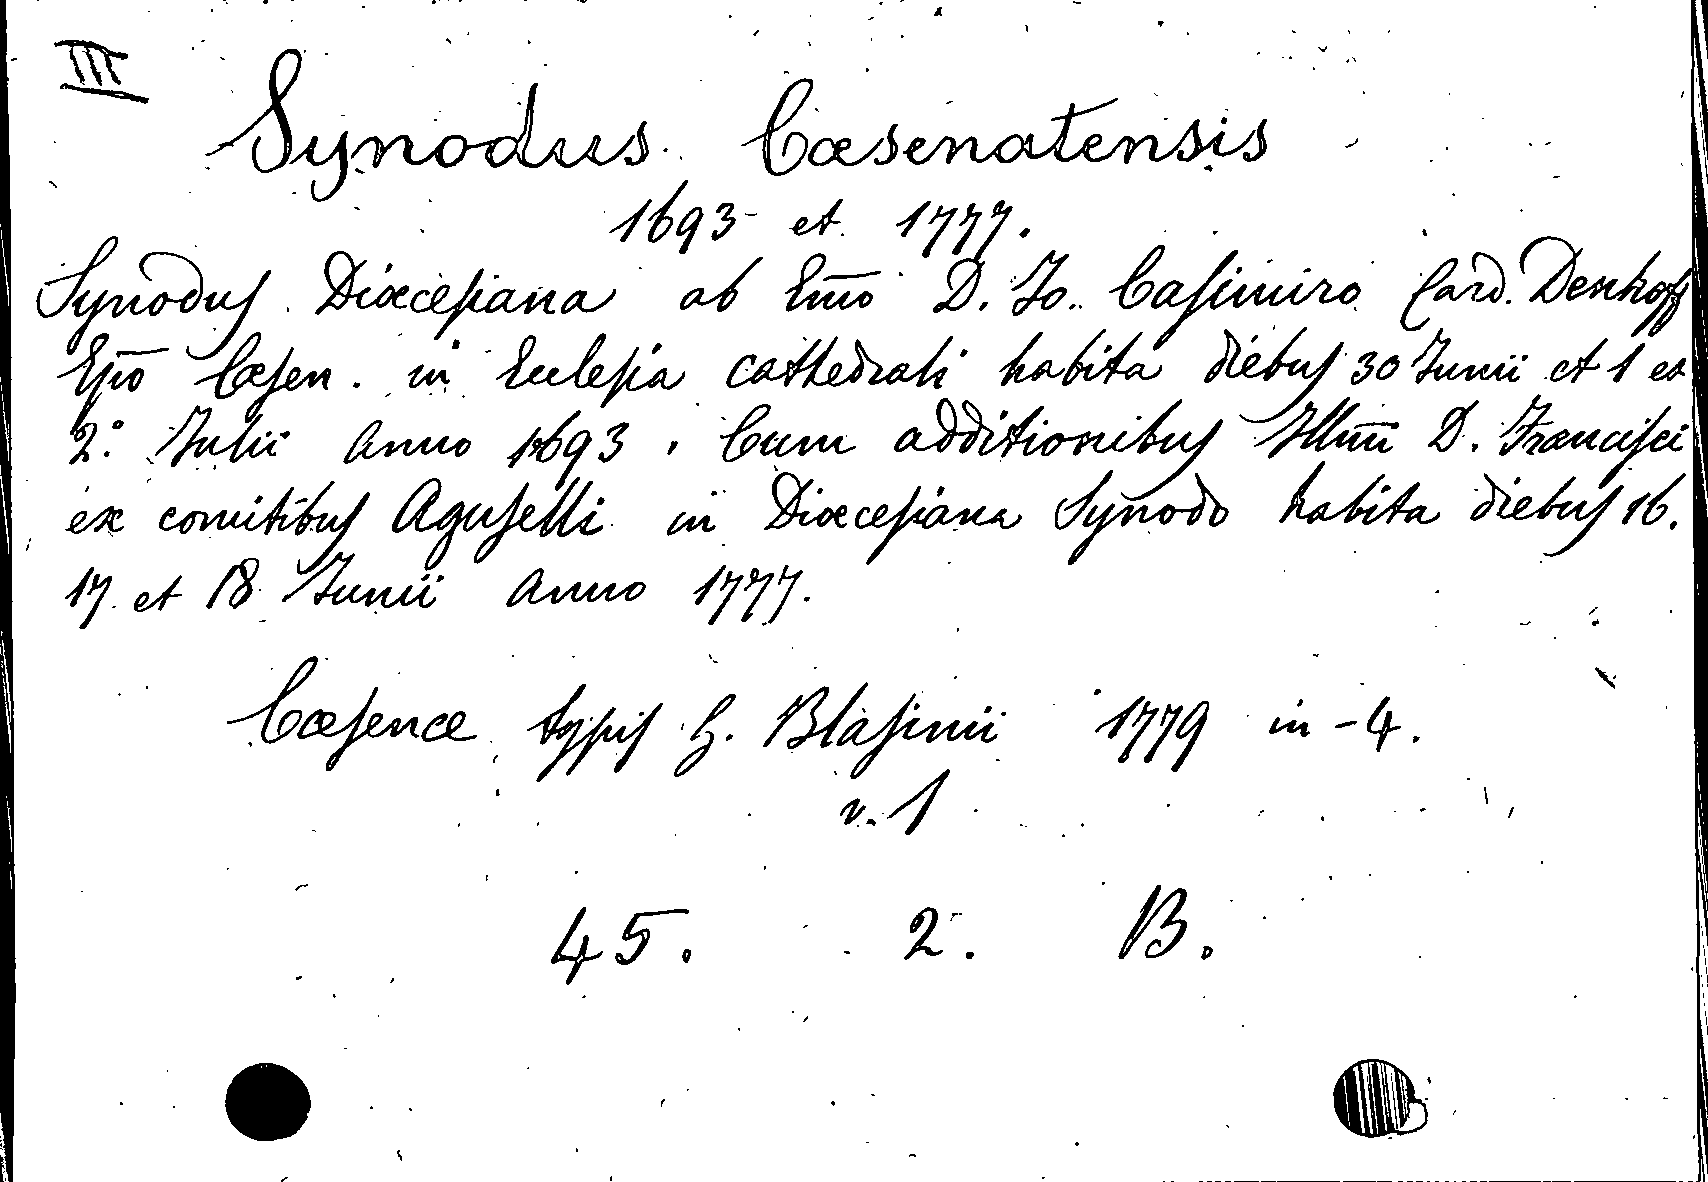 III
Synodus Cæsenatensis
1693 et 1777.
Synodus Diœcesana ab Emo D. Jo. Casimiro Card. Denhoff
Epo Cæsen. in Ecclesia cathedrali habita diebus 30 Junii et 1 et
2° Julii anno 1693. Cum additionibus Illmi D. Francisci
ex comitibus Aguselli in Diœcesana Synodo habita diebus 16.
17 et 18 Junii anno 1777.
Cæsenæ typis G. Blasinii 1779 in-4.
v. 1
45. 2. B.